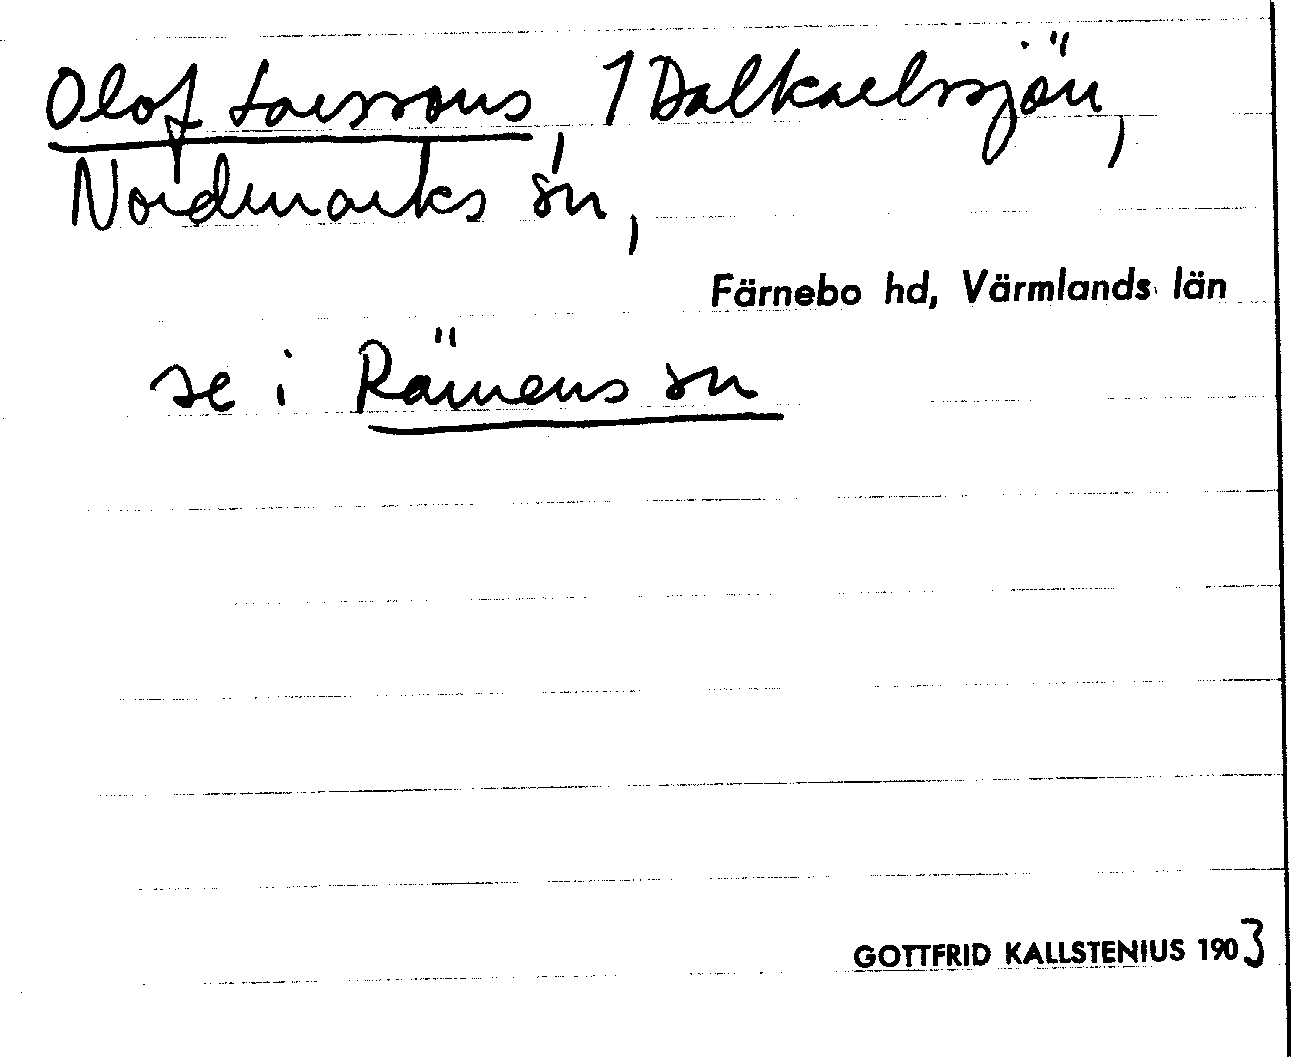 Olof Larssons, 1 Dalkarlssjön,
Nordmarks sn,
Färnebo hd, Värmlands län
se i Rämens sn
GOTTFRID KALLSTENIUS 1903